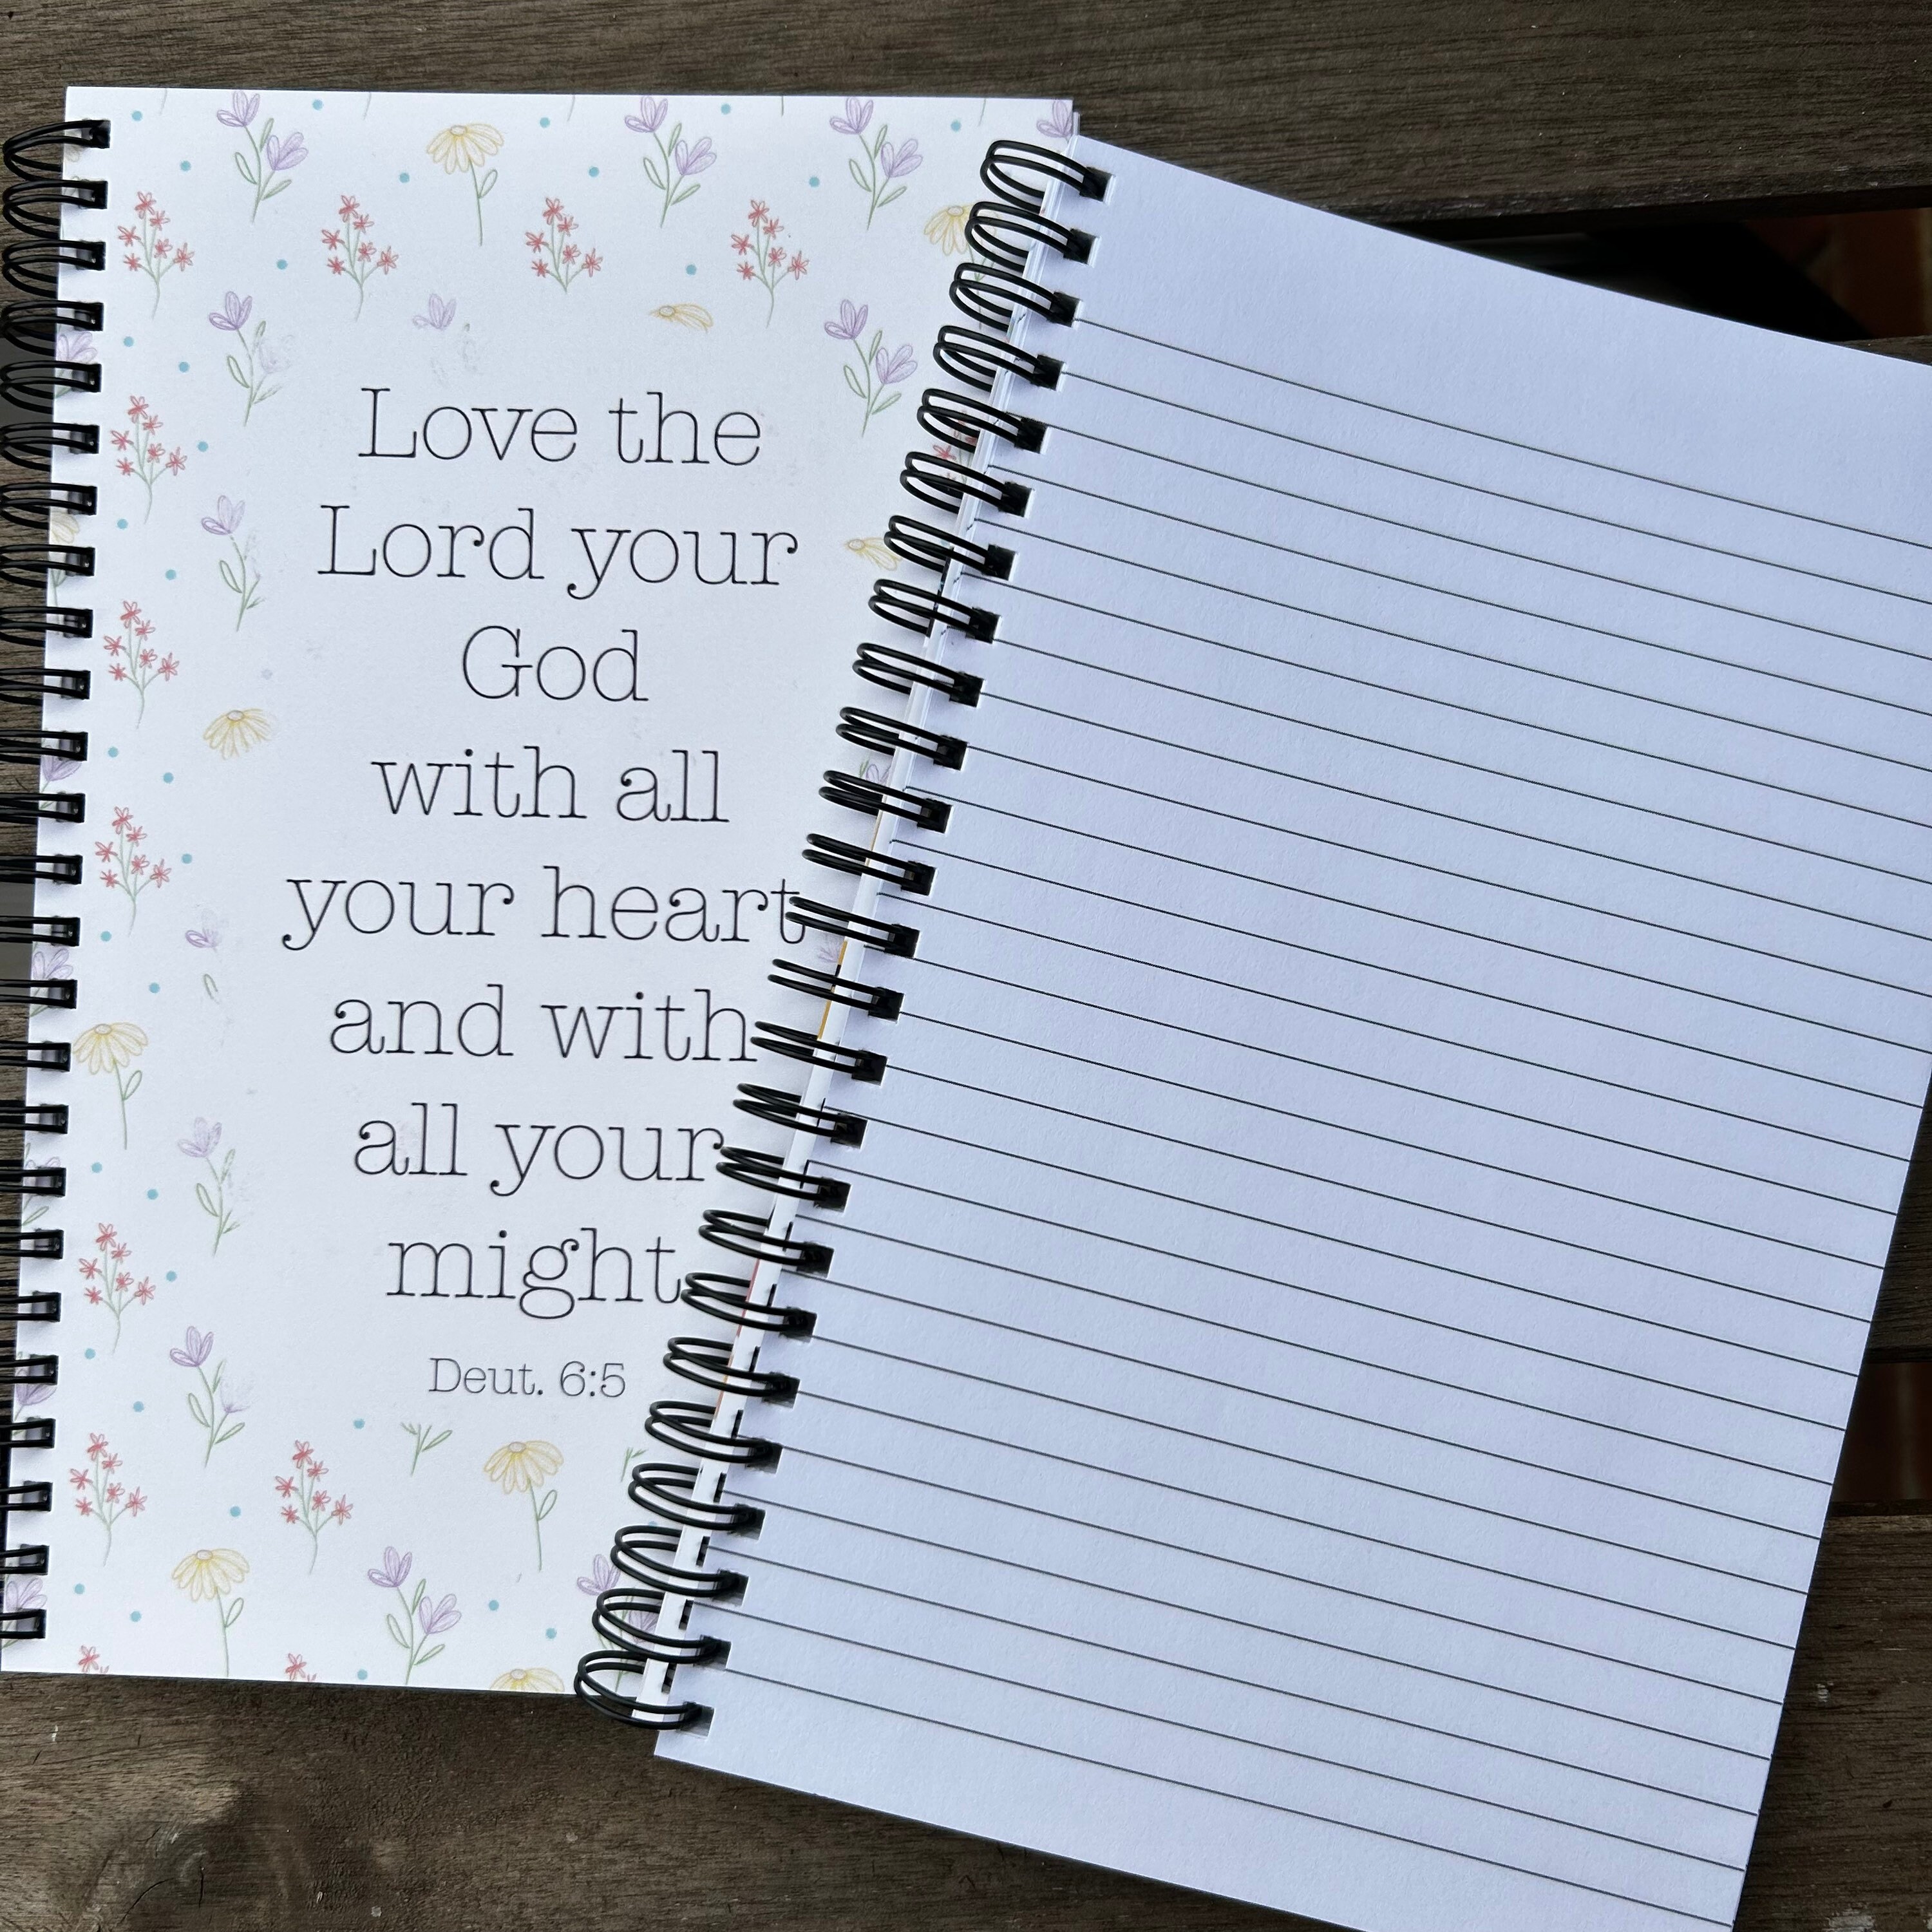 Love the
Lord your
God
with all
your heart
and with
all your
might
Deut. 6:5